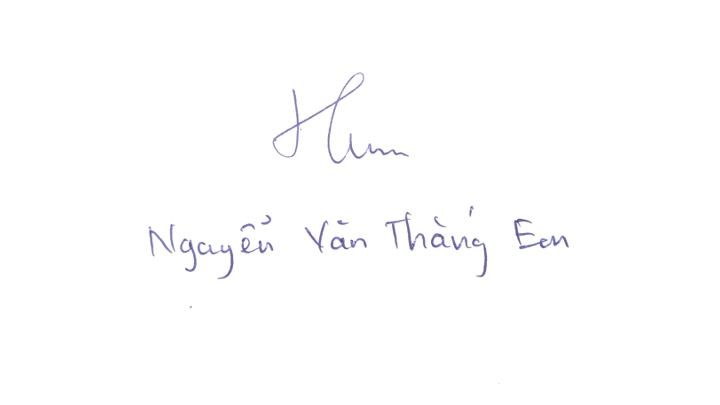 Nguyễn Văn Thắng Em